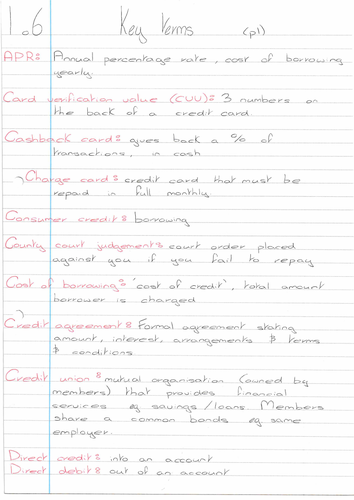 1.6 Key terms (p1)
APR: Annual percentage rate, cost of borrowing
yearly.
Card verification value (CVV): 3 numbers on
the back of a credit card.
Cashback card: gives back a % of
transactions, in cash
Charge card: credit card that must be
repaid in full monthly.
Consumer credit: borrowing
County court judgement: court order placed
against you if you fail to repay
Cost of borrowing: 'cost of credit', total amount
borrower is charged
Credit agreement: Formal agreement stating
amount, interest, arrangements & terms
& conditions.
Credit union: mutual organisation (owned by
members) that provides financial
services eg savings/loans. Members
share a common bonds eg same
employer.
Direct credit: into an account
Direct debit: out of an account